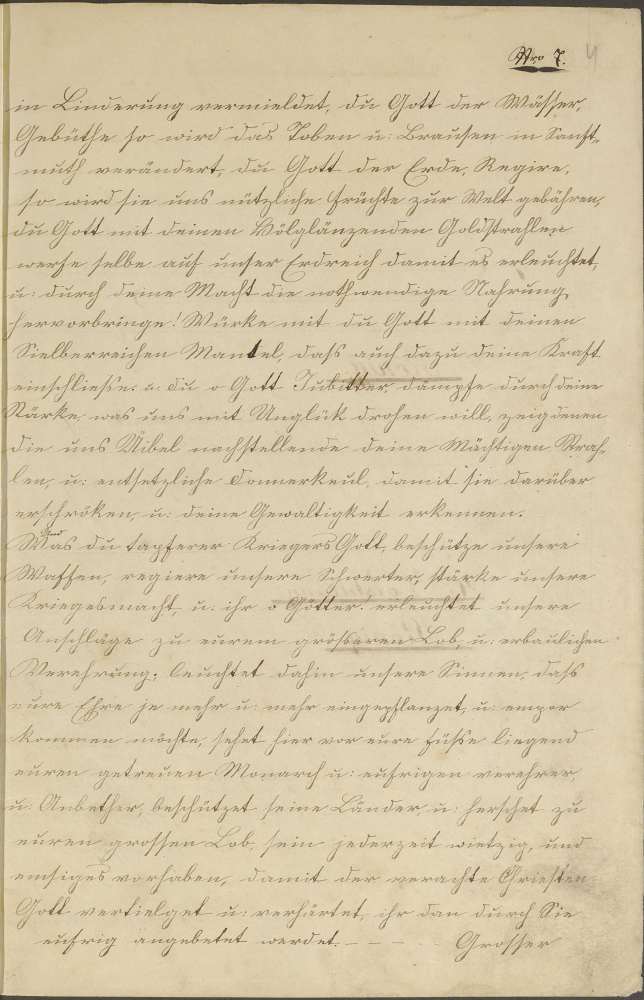 Nro 7. 4
in Linderung vermieldet, du Gott der Wässer,
Gebüthe so wird das Toben u: Brausen in Sanft-
muth verändert, du Gott der Erde, Regire,
so wird sie uns nützliche früchte zur Welt gebähren,
du Gott mit deinen Völglänzenden Goldstrahlen
werfe selbe auf unser Erdreich damit es erleuchtet,
u: durch deine Macht die nothwendige Nahrung
hervorbringe! Würke mit du Gott mit deinen
Sielberreichen Mantel, dass auch dazu deine Kraft
einschliesse. u: du o Gott Jubitter, dämpfe durch deine
Stärke, was uns mit Unglük drohen will, zeig denen
die uns Uibel nachstellende deine Mächtigen Strah-
len, u: entsetzliche Donnerkeul, damit sie darüber
erschröken, u: deine Gewaltigkeit erkennen.
Und
Was du tapferer Kriegers Gott, beschütze unsere
Waffen, regiere unsere Schwerter, stärke unsere
Kriegesmacht, u: ihr o Götter! erleuchtet unsere
Anschläge zu eurem grösseren Lob, u: erbaulichen
Verehrung; leuchtet dahin unsere Sinnen, dass
eure Ehre je mehr u: mehr eingepflanzet, u: empor
kommen möchte, sehet hier vor eure füsse liegend
euren getreuen Monarch u: eufrigen verehrer,
u: Anbether, beschützet seine Länder u: herschet zu
euren grossen Lob, sein jederzeit wietzig, und
emsiges vorhaben, damit der verachte Christen
Gott vertielget u: verhärtet, ihr dan durch Sie
eufrig angebetet werdet. - - - Grosser